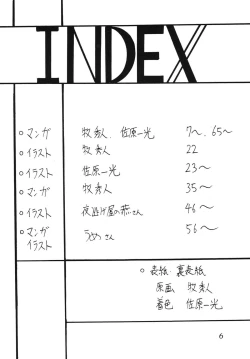 INDEX
○マンガ 牧秀人 佐原一光 7〜、65〜
○イラスト 牧秀人 22
○イラスト 佐原一光 23〜
○マンガ 牧秀人 35〜
○イラスト 夜逃げ屋の恭さん 46〜
○マンガ さん 56〜
イラスト
○表紙・裏表紙
原画 牧秀人
着色 佐原一光
6